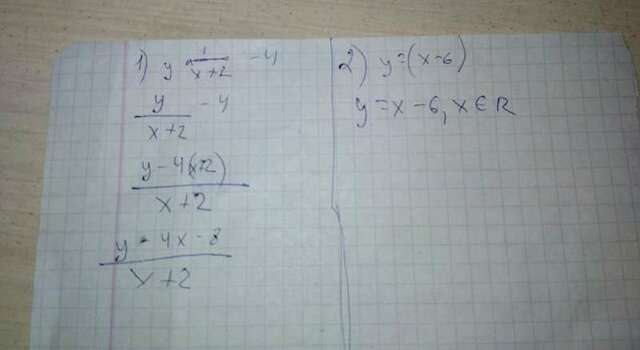 1) y 1/(x+2) - 4
y/(x+2) - 4
(y - 4(x+2))/(x+2)
(y - 4x - 8)/(x+2)
2) y = (x-6)
y = x - 6, x ∈ R